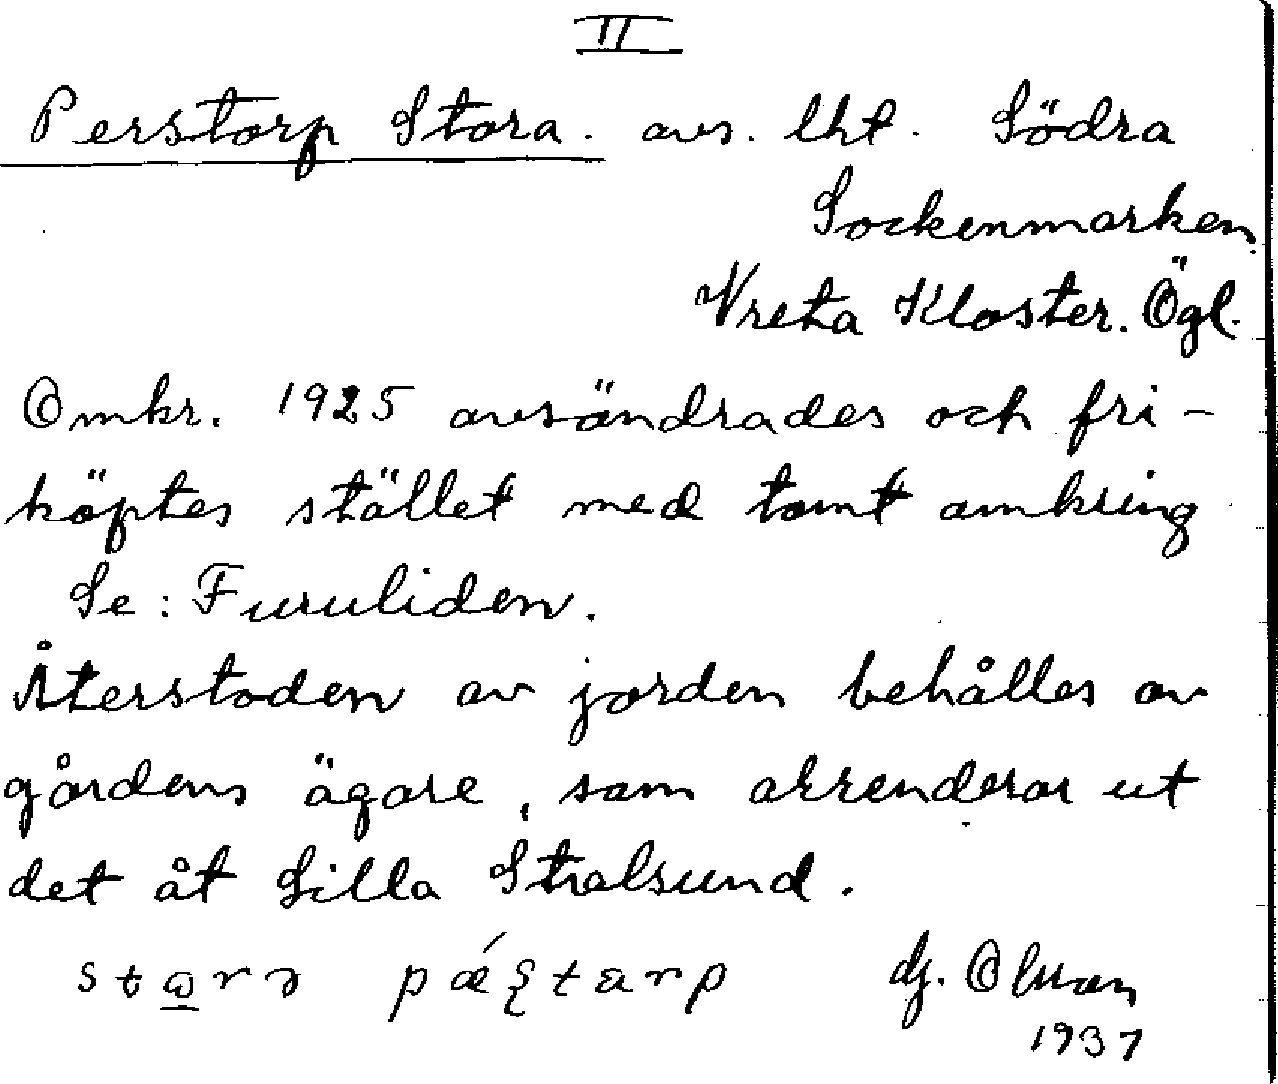 II
Perstorp Stora. avs. lht. Södra
Sockenmarken.
Vreta Kloster. Ögl.
Omkr. 1925 avsöndrades och fri-
köptes stället med tomt omkring
Se: Furuliden.
Återstoden av jorden behålles av
gårdens ägare, som arrenderar ut
det åt Lilla Stralsund.
1937